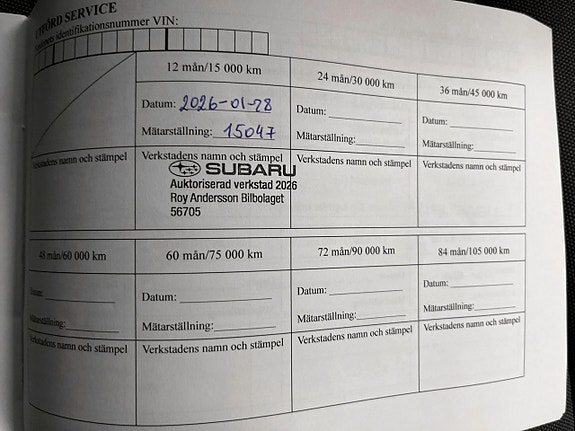 UTFÖRD SERVICE
identifikationsnummer VIN:
12 mån/15 000 km
24 mån/30 000 km
36 mån/45 000 km
Datum: 2026-01-28
Datum:
Datum:
Mätarställning: 15047
Mätarställning:
Mätarställning:
Verkstadens namn och stämpel
Verkstadens namn och stämpel
Verkstadens namn och stämpel
Verkstadens namn och stämpel
SUBARU
Auktoriserad verkstad 2026
Roy Andersson Bilbolaget
56705
48 mån/60 000 km
60 mån/75 000 km
72 mån/90 000 km
84 mån/105 000 km
Datum:
Datum:
Datum:
Datum:
Mätarställning:
Mätarställning:
Mätarställning:
Mätarställning:
Verkstadens namn och stämpel
Verkstadens namn och stämpel
Verkstadens namn och stämpel
Verkstadens namn och stämpel